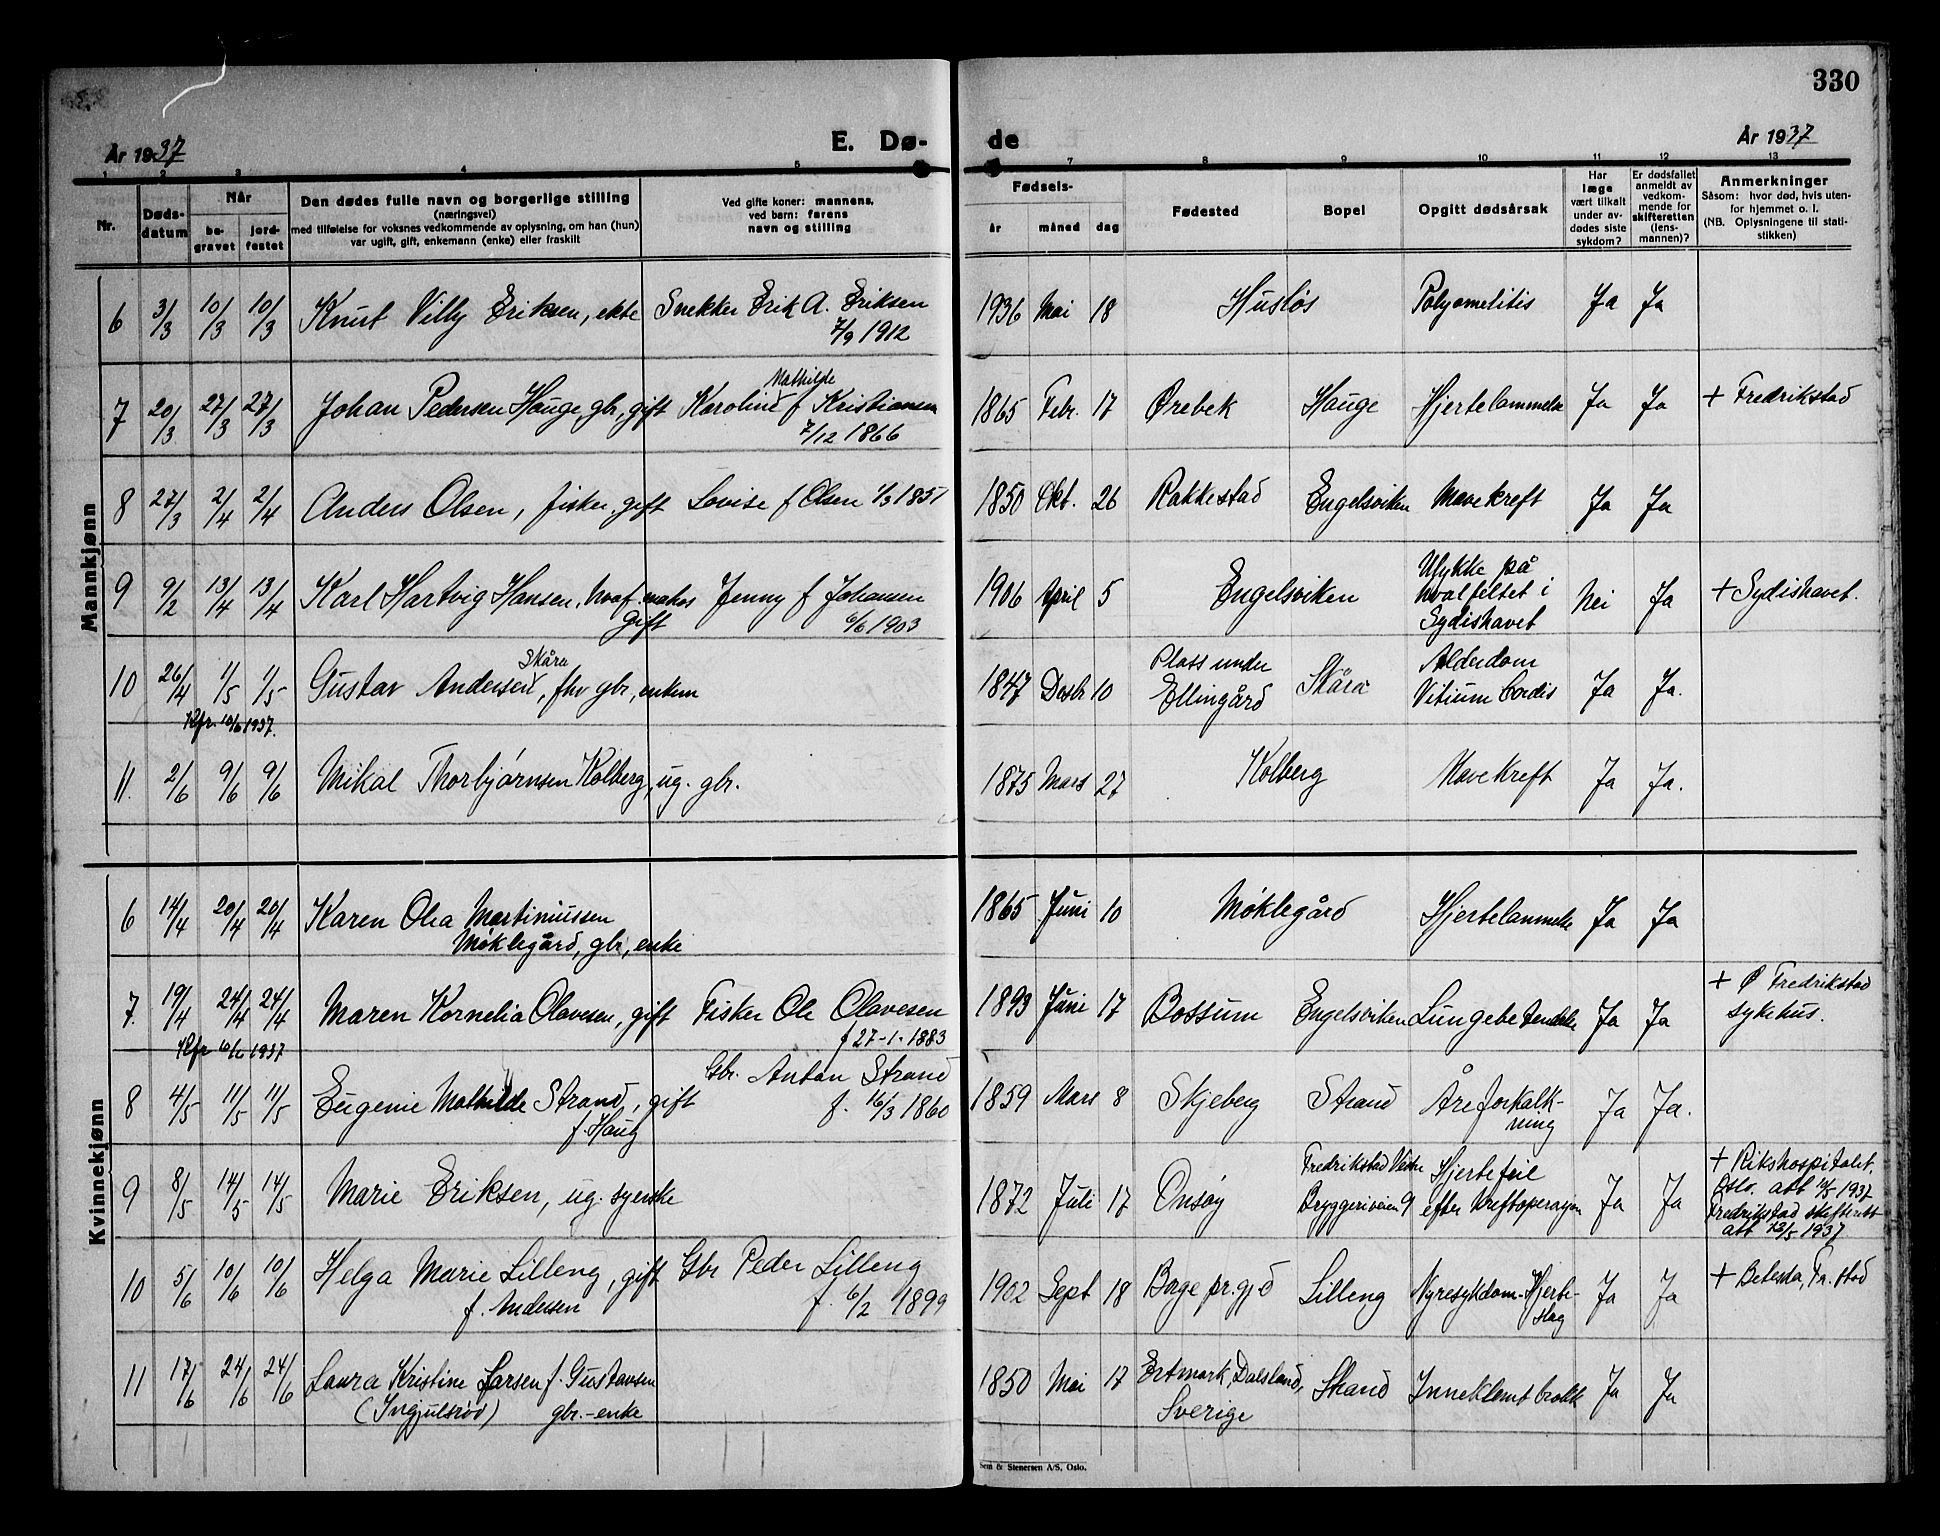 330
År 1937
E. Dø-
de
År 1937
1 2 3 4 5 7 8 9 10 11 12 13
Nr.
Døds-
datum
Når
be-
gravet
jord-
festet
Den dødes fulle navn og borgerlige stilling
(næringsvei)
med tilføielse for voksnes vedkommende av oplysning, om han (hun)
var ugift, gift, enkemann (enke) eller fraskilt
Ved gifte koner: mannens,
ved barn: farens
navn og stilling
Fødsels-
år måned dag
Fødested
Bopel
Opgitt dødsårsak
Har
læge
vært tilkalt
under av-
dødes siste
sykdom?
Er dødsfallet
anmeldt av
vedkom-
mende for
skifteretten
(lens-
mannen)?
Anmerkninger
Såsom: hvor død, hvis uten-
for hjemmet o. l.
(NB. Oplysningene til stati-
stikken)
Mankjønn
6 3/3 10/3 10/3 Knut Villy Eriksen, ekte Snekker Erik A. Eriksen 1936 Mai 18 Husløs Polyomelitis Ja Ja
7/9 1912
Mathilde
7 20/3 27/3 27/3 Johan Pedersen Hauge, gbr, gift Karoline f Kristiansen 1865 Febr. 17 Ørebek Hauge Hjertelammelse Ja Ja + Fredrikstad
7/12 1866
8 27/3 2/4 2/4 Anders Olsen, fisker, gift Lovise f Olsen 1/3 1851 1850 Okt. 26 Rakkestad Engelsviken Mavekreft Ja Ja
9 9/2 13/4 13/4 Karl Hartvig Hansen, hvalf. Jenny f Johansen 1906 April 5 Engelsviken Ulykke på
hvalfeltet i Nei Ja + Sydishavet.
gift 6/6 1903 Sydishavet
Skåra
10 26/4 1/5 1/5 Gustav Andersen, fhv gbr, enkem 1847 Desbr 10 Plass under
Ellingård Skåra Alderdom
Vitium Cordis Ja Ja.
Kfr. 10/6 1937.
11. 2/6 9/6 9/6 Mikal Thorbjørnsen Kolberg, ug. gbr. 1875 Mars 27 Kolberg Mavekreft Ja Ja.
Kvinnekjønn
6 14/4 20/4 20/4 Karen Olea Martiniussen 1865 Juni 10 Møklegård Hjertelammelse Ja Ja
Møklegård, gbr, enke
7. 19/4 24/4 24/4 Maren Kornelia Olavesen, gift Fisker Ole Olavesen 1893 Juni 17 Bossum Engelsviken Lungebetendelse Ja Ja + Ø Fredrikstad
sykehus.
f 27-1-1883
Kfr 10/6 1937
8 4/5 11/5 11/5 Eugenie Mathilde Strand, gift Gbr. Anton Strand 1859 Mars 8 Skjeberg Strand Åreforkalk-
ning Ja Ja.
f. Haug f. 16/3 1860
9 8/5 14/5 14/5 Marie Eriksen, ug. syerske 1872 Juli 17 Onsøy Fredrikstad Vestre
Bryggeriveien 9 Hjertefeil
efter kreftoperasjon Ja Ja + Rikshospitalet,
Oslo. att 11/5 1937
Fredrikstad skifterett
att 13/5 1937
10 5/6 10/6 10/6 Helga Marie Lilleng, gift Gbr Peder Lilleng 1902 Sept 18 Borge pr.gjd Lilleng Nyresykdom-Hjerte-
slag Ja Ja + Betesta, Fr.stad
f. Andersen f. 6/2 1899
11 17/6 24/6 24/6 Laura Kristine Larsen f. Gustavsen 1850 Mai 17 Ertmark, Dalsland,
Sverige Strand Inneklemt brokk Ja Ja
(Ingjulsrød) gbr.-enke
Sem & Stenersen A/S, Oslo.